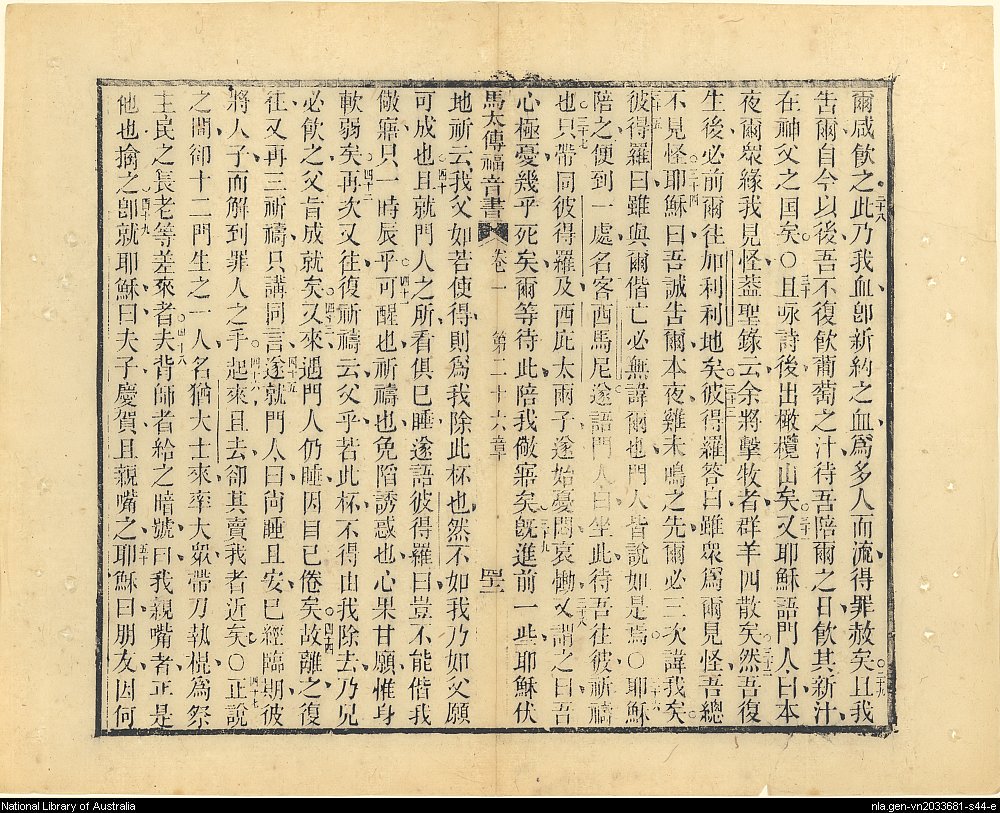 爾咸飲之二十八此乃我血即新約之血爲多人而流得罪赦矣二十九且我
告爾自今以後吾不復飲葡萄之汁待吾陪爾之日飲其新汁
在神父之国矣○三十且咏詩後出橄欖山矣三十一又耶穌語門人曰本
夜爾眾緣我見怪葢聖錄云余將擊牧者群羊四散矣三十二然吾復
生後必前爾往加利利地矣三十三彼得羅答曰雖眾爲爾見怪吾總
不見怪三十四耶穌曰吾誠告爾本夜雞未鳴之先爾必三次諱我矣
三十五彼得羅曰雖與爾偕亡必無諱爾也門人皆說如是焉○三十六耶穌
陪之便到一處名客西馬尼遂語門人曰坐此待吾往彼祈禱
也三十七只帶同彼得羅及西庇太兩子遂始憂悶哀慟三十八又謂之曰吾
心極憂幾乎死矣爾等待此陪我儆寤矣三十九既進前一些耶穌伏
馬太傳福音書 卷一 第二十六章 四十二
地祈云我父如若使得則爲我除此杯也然不如我乃如父願
可成也四十且就門人之所看俱已睡遂語彼得羅曰豈不能偕我
儆寤只一時辰乎四十一可醒也祈禱也免陷誘惑也心果甘願惟身
軟弱矣四十二再次又往復祈禱云父乎若此杯不得由我除去乃兄
必飲之父旨成就矣四十三又來遇門人仍睡因目已倦矣四十四故離之復
往又再三祈禱只講同言四十五遂就門人曰尚睡且安已經臨期彼
將人子而解到罪人之手四十六起來且去卻其賣我者近矣○四十七正說
之間卻十二門生之一人名猶大士來率大眾帶刀執棍爲祭
主民之長老等差來者四十八夫背師者給之暗號曰我親嘴者正是
他也擒之四十九即就耶穌曰夫子慶賀且親嘴之五十耶穌曰朋友因何
National Library of Australia
nla.gen-vn2033681-s44-e